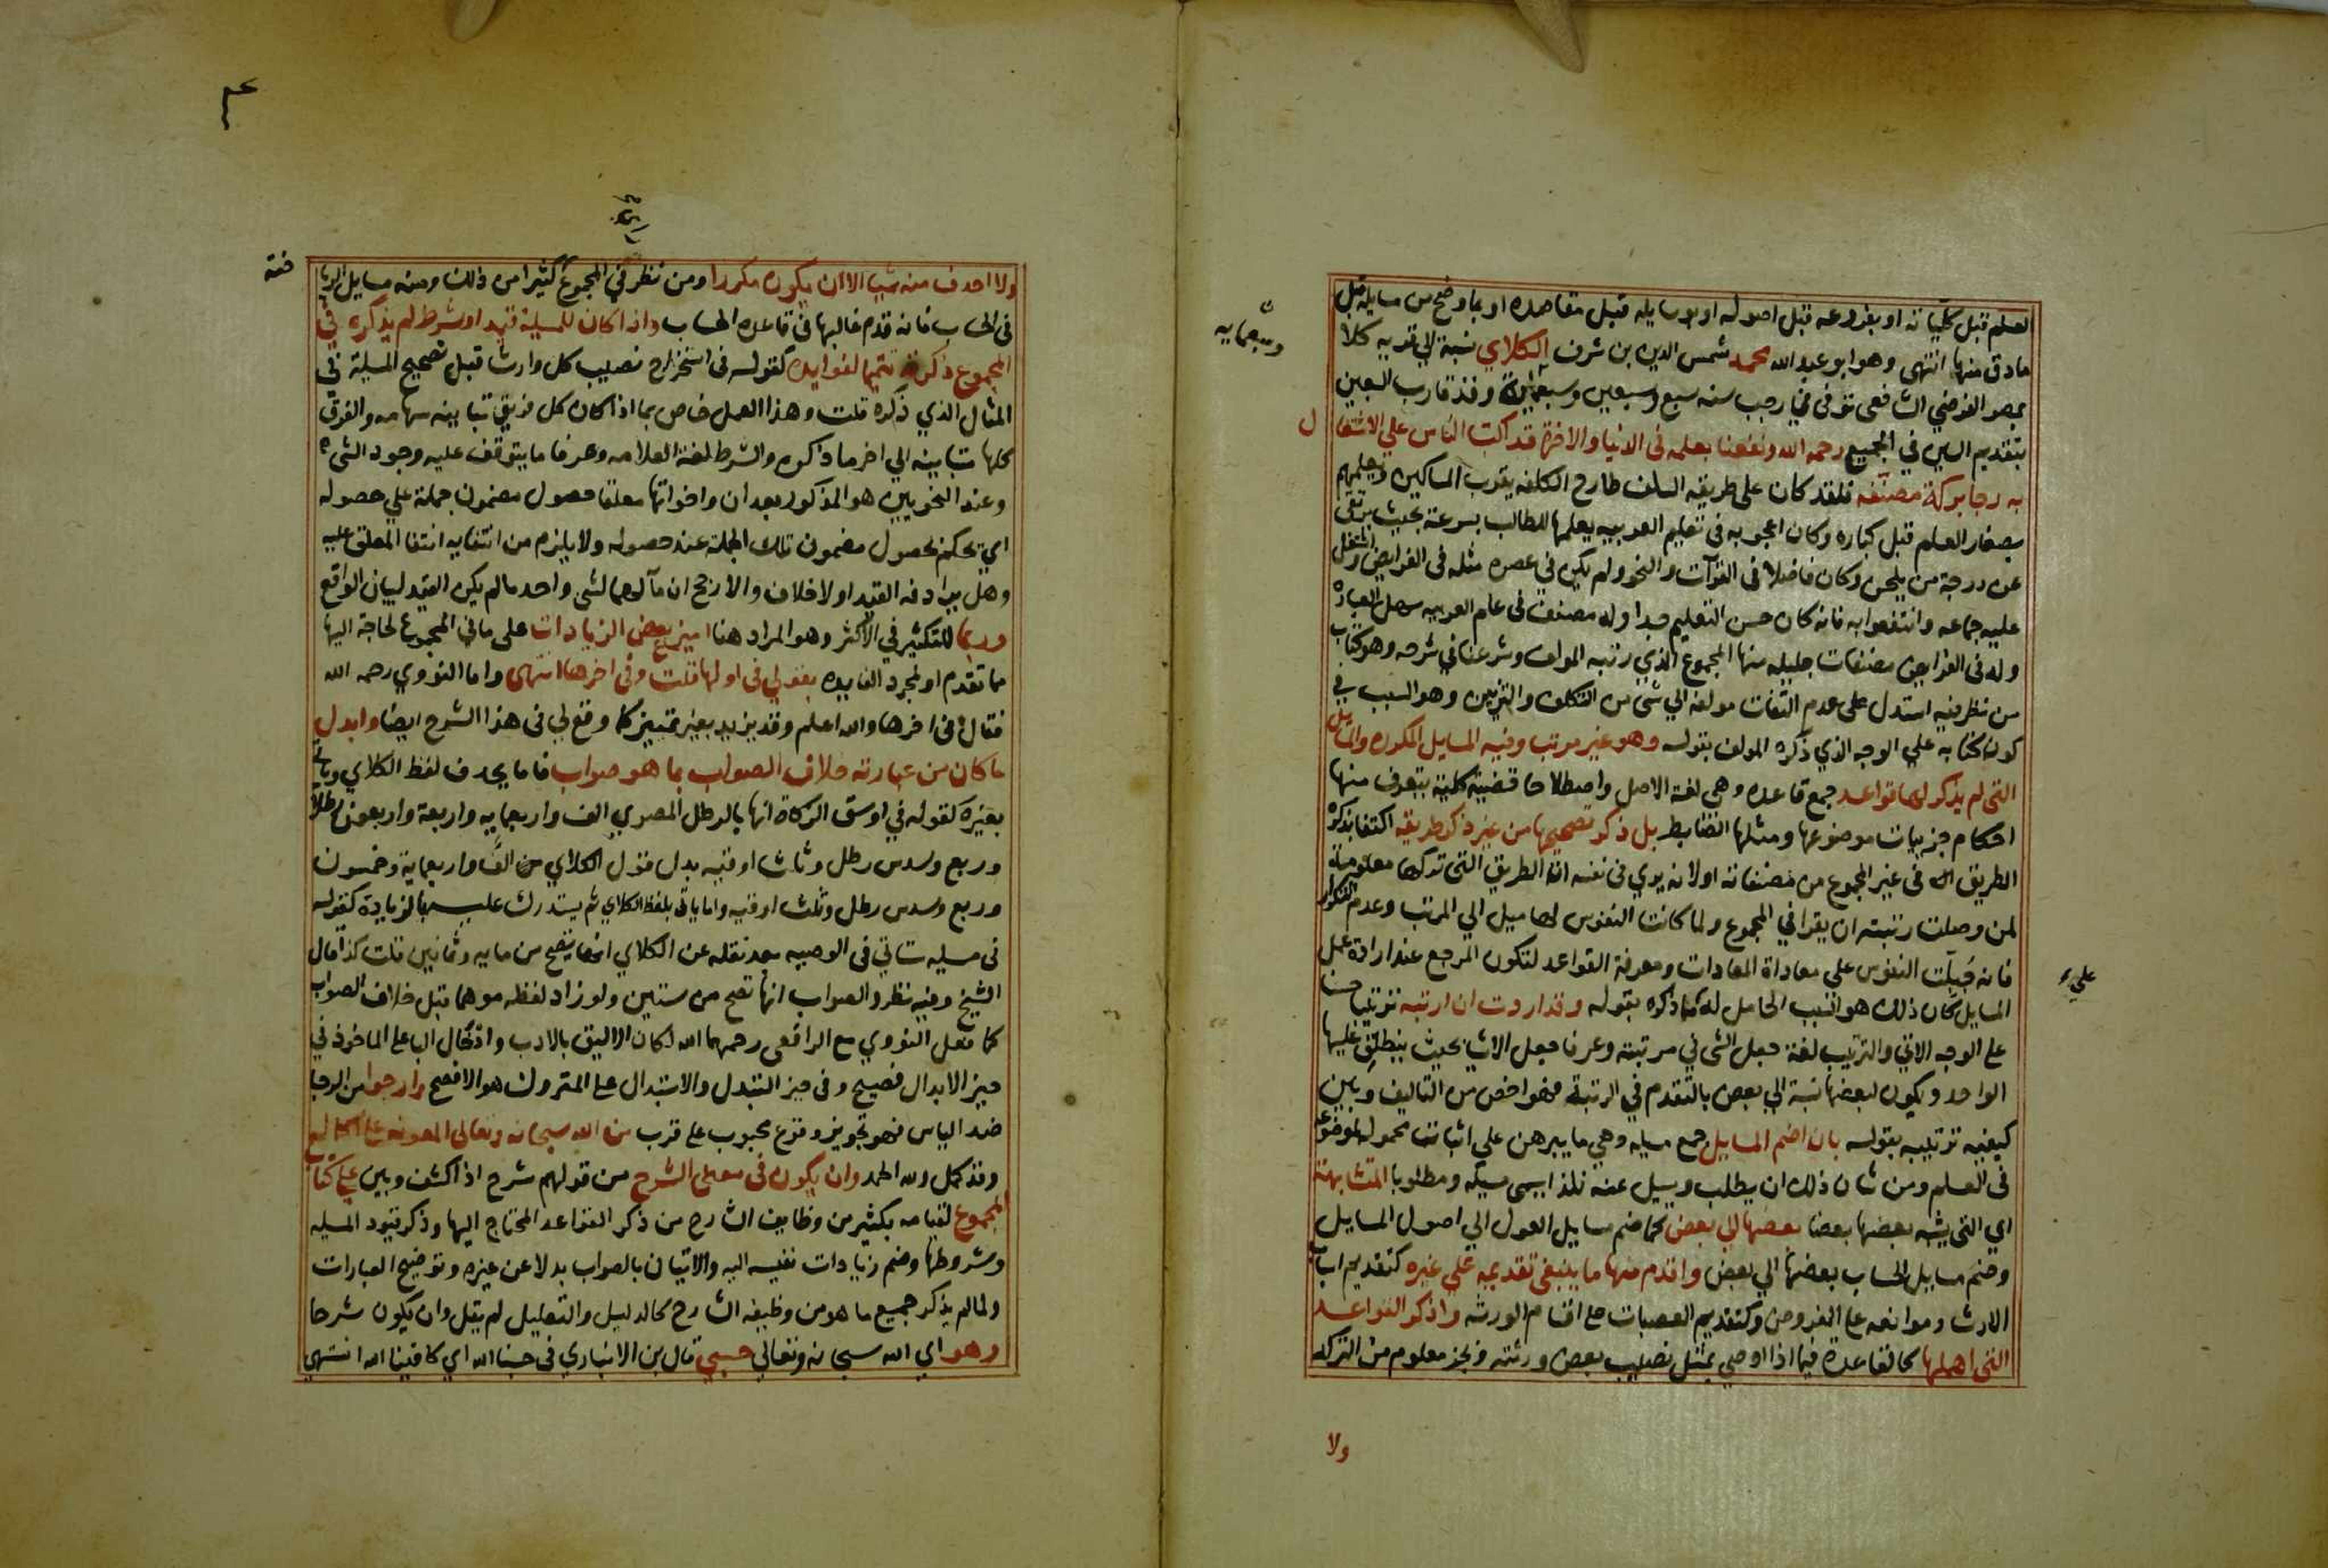 العلم قبل كلياته او بفروعه قبل اصوله او بوسايله قبل مقاصده او بما وضح من مسايله قبل
مادق منها انتهى وهو ابو عبد الله محمد شمس الدين بن شرف الكلاي نسبة الي قريه كلا
بمصر الفرضي الشافعى توفى في رجب سنه سبع وسبعين وسبعمائة وقد قارب السبعين
وسبعمايه
بتقديم السين في الجميع رحمه الله ونفعنا بعلمه في الدنيا والاخرة قد اكب الناس علي الاشتغا
ل
به رجا بركة مصنفه فلقد كان على طريقه السلف طارح الكلفه يقرب المساكين ويعلمهم
بصغار العلم قبل كباره وكان اعجوبه في تعليم العربيه يعلمها للطالب بسرعة بحيث يرتقى
عن درجة من يلحن وكان فاضلا فى القرآت والنحو ولم يكن في عصره مثله فى الفرايض واشتغل
عليه جماعه وانتفعوا به فانه كان حسن التعليم جدا وله مصنف فى علم العربيه سهل العبارة
وله فى الفرايض مصنفات جليله منها المجموع الذي رتبه المولف وشرعنا في شرحه وهو كتاب
من نظر فيه استدل على عدم التفات مولفه الي شى من التكلف والتزيين وهو السبب في
كون كتابه علي الوجه الذي ذكره المولف بقوله وهو غير مرتب وفيه المسايل المكرره والمسايل
التى لم يذكر لها قواعد جمع قاعده وهي لغة الاصل واصطلاحا قضية كلية يتعرف منها
احكام جزييات موضوعها ومثلها الضابط بل ذكر تصحيحها من غير ذكر طريقه اكتفا بذكره
الطريق فى غير المجموع من مصنفاته اولانه يري فى نفسه ان الطريق التى تركها معلومة
لمن وصلت رتبته ان يقرا في المجموع ولما كانت النفوس لها ميل الي المرتب وعدم التكرار
فانه جبلت النفوس على معاداة المعادات ومعرفة القواعد لتكون المرجع عند ارادة عمل
المسايل كان ذلك هو السبب الحامل له علي ما ذكره بقوله وقد اردت ان ارتبه ترتيبا حسنا
على الوجه الاتي والترتيب لغة جعل الشى في مرتبته وعرفا جعل الاشيا بحيث ينطلق عليها
الواحد ويكون لبعضها نسبة الي بعض بالتقدم في الرتبة فهو اخص من التاليف وبين
كيفيه ترتيبه بقوله بان اضم المسايل جمع مسيله وهي ما يبرهن على اثبات محموله لموضوعه
فى العلم ومن شان ذلك ان يطلب ويسيل عنه فلذا يسمى مسيله ومطلوبا المتشابهة
اي التى يشبه بعضها بعضا بعضها الي بعض كما ضم مسايل العول الي اصول المسايل
وضم مسايل الحساب بعضها الي بعض واقدم منها ما ينبغى تقديمه علي غيره كتقديم اسباب
الارث وموانعه على الفروض وكتقديم العصبات على اقسام الورثه واذكر القواعد
التى اهملها كالقاعدة فيما اذا اوصى بمثل نصيب بعض ورثته وبجز معلوم من التركه
ولا
ولا احذف منه شيا الا ان يكون مكررا ومن نظر في المجموع كثيرا من ذلك ومنه مسايل الربا
فى الحساب فانه قدم غالبها فى قاعده الحساب واذا كان للمسيلة قيد او شرط لم يذكره في
المجموع ذكرته تتميما لفوايده كقوله فى استخراج نصيب كل وارث قبل تصحيح المسيلة في
المثال الذي ذكره قلت وهذا العمل خاص بما اذا كان كل فريق تباينه سهامه والفرق
كلها متباينه الي اخر ما ذكره والشرط لغة العلامه وعرفا ما يتوقف عليه وجود الشىء
وعند النحويين هو المذكور بعد ان واخواتها معلقا حصول مضمون جملة علي حصوله
اي يحكم بحصول مضمون تلك الجملة عند حصوله ولا يلزم من انتفايه انتفا المعلق عليه
وهل يرادفه القيد اولا خلاف والارجح ان مآلهما لشى واحد مالم يكن القيد لبيان الواقع
وربما للتكثير في الاكثر وهو المراد هنا اميز بعض الزيادات على مافي المجموع لحاجة اليها
مما تقدم او لمجرد الفايده بقولي فى اولها قلت وفى اخرها انتهى واما النووي رحمه الله
فقال في اخرها والله اعلم وقد يزيد بغير تمييز كما وقع لي فى هذا الشرح ايضا وابدل
ما كان من عبارته خلاف الصواب بما هو صواب فاما يحذف لفظ الكلاي وياتي
بغيره كقوله في اوسق الزكاة انها بالرطل المصري الف واربعمايه واربعة واربعون رطلا
وربع وسدس رطل وثلث اوقيه بدل قول الكلاي هي الف واربعماية وخمسون
وربع وسدس رطل وثلث اوقيه واما ياتى بلفظ الكلاي ثم يستدرك عليه بالزيادة كقوله
فى مسيله تاتي فى الوصيه بعد نقله عن الكلاي انها تصح من مايه وثمانين قلت كذا قال
الشيخ وفيه نظر والصواب انها تصح من ستين ولو زاد لفظه موهما قبل خلاف الصواب
كما فعل النووي مع الرافعى رحمهما الله لكان الاليق بالادب وادخال البا على الماخوذ في
حيز الابدال فصيح وفى حيز التبدل والاستبدال على المتروك هو الافصح وارجوا من الرجا
ضد الياس فهو تجويز وقوع محبوب على قرب من الله سبحانه وتعالى المعونه على اكماله
وقد كمل ولله الحمد وان يكون فى معنى الشرح من قولهم شرح اذا كشف وبين علي كتاب
المجموع لقيامه بكثير من وظايف الشارح من ذكر القواعد المحتاج اليها وذكر قيود المسيله
وشروطها وضم زيادات نفيسه اليه والاتيان بالصواب بدلا عن غيره وتوضيح العبارات
ولمالم يذكر جميع ما هو من وظيفه الشارح كالدليل والتعليل لم يقل وان يكون شرحا
وهو اي الله سبحانه وتعالي حسبي قال بن الانباري فى حسبنا الله اي كافينا الله انتهى